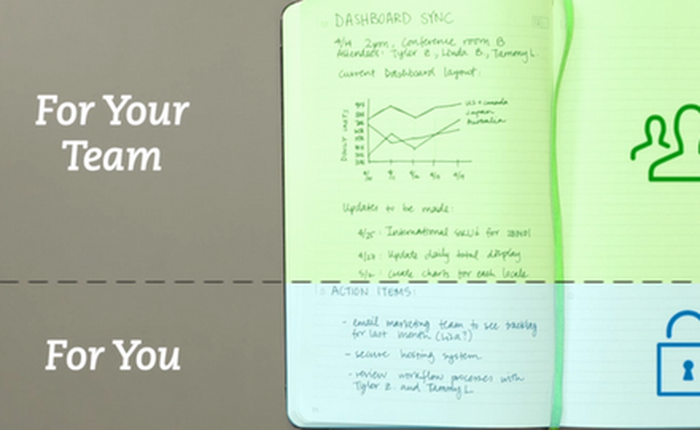 For Your
Team
DASHBOARD SYNC
4/14 2pm, Conference room B
Attendees: Tyler Z., Linda B., Tammy L.
Current Dashboard layout:
DAILY VISITS
US + Canada
Japan
Australia
Updates to be made:
4/25: International for
4/27: Update daily total display
create charts for each locale
ACTION ITEMS:
For You
- email marketing team to see
for last month (Lisa?)
- secure hosting system
- review workflow processes with
Tyler Z. and Tammy L.